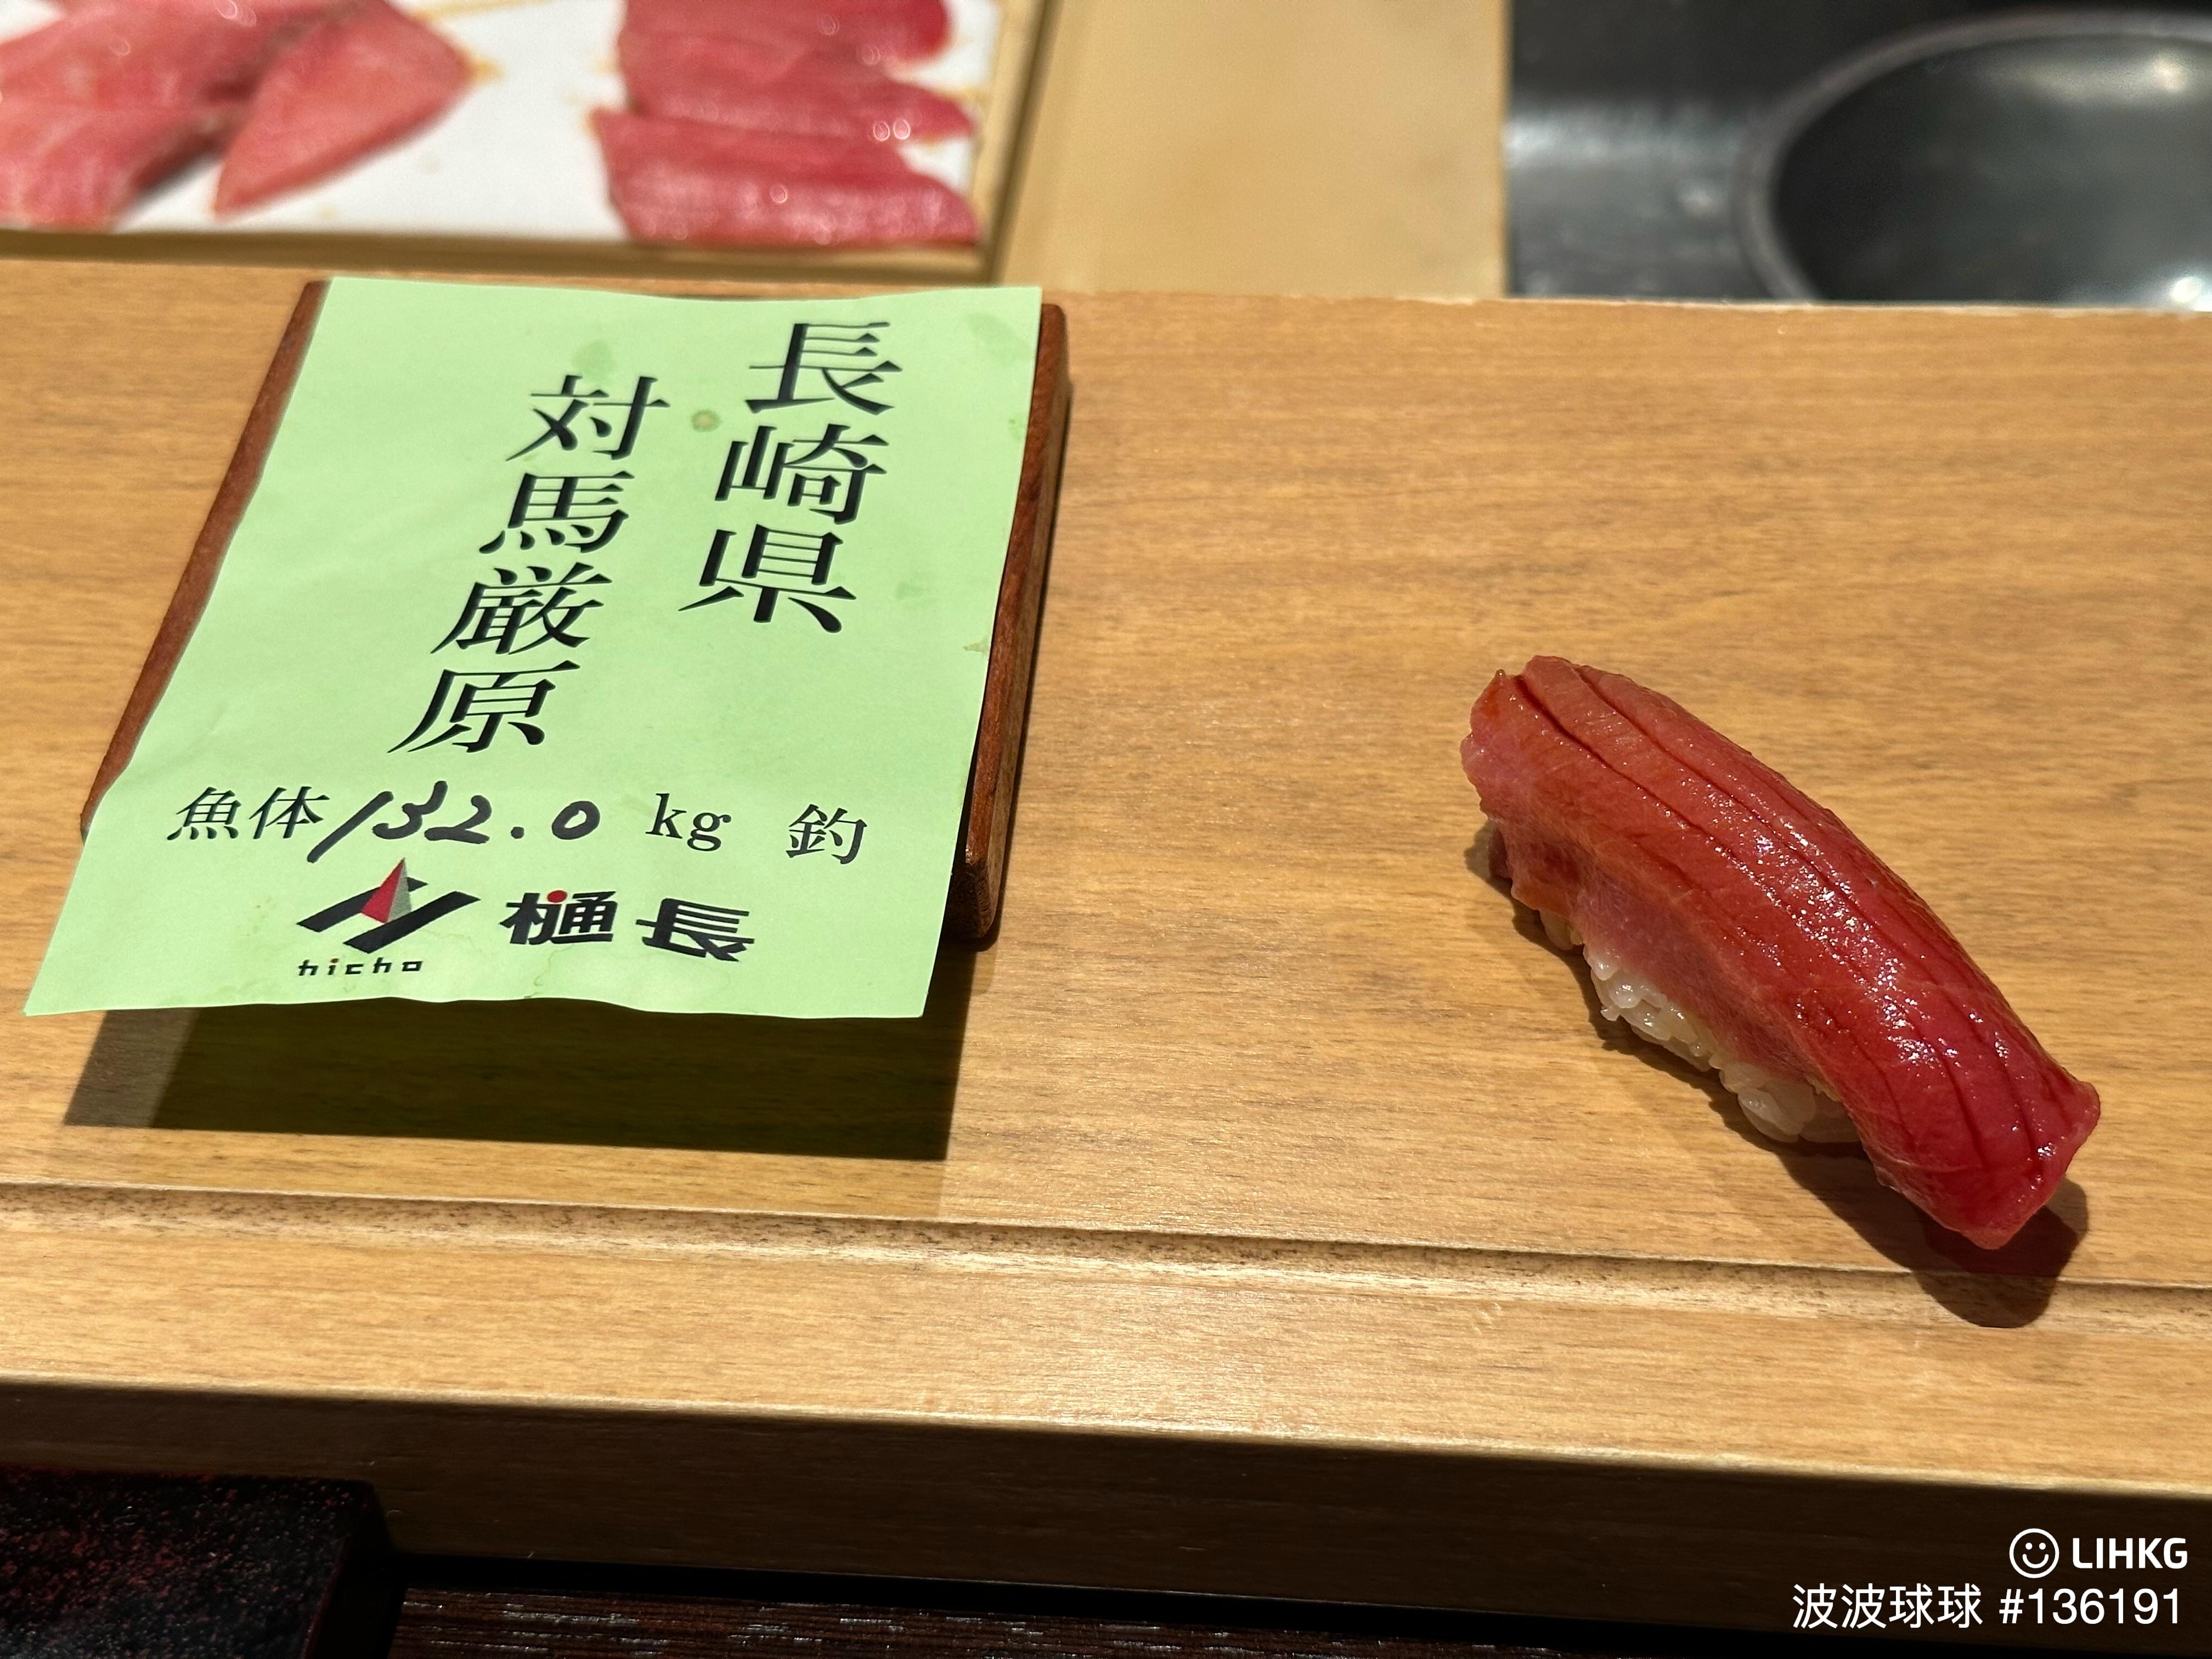 長崎県
対馬厳原
魚体 132.0 kg 釣
hicho 樋長
LIHKG
波波球球 #136191